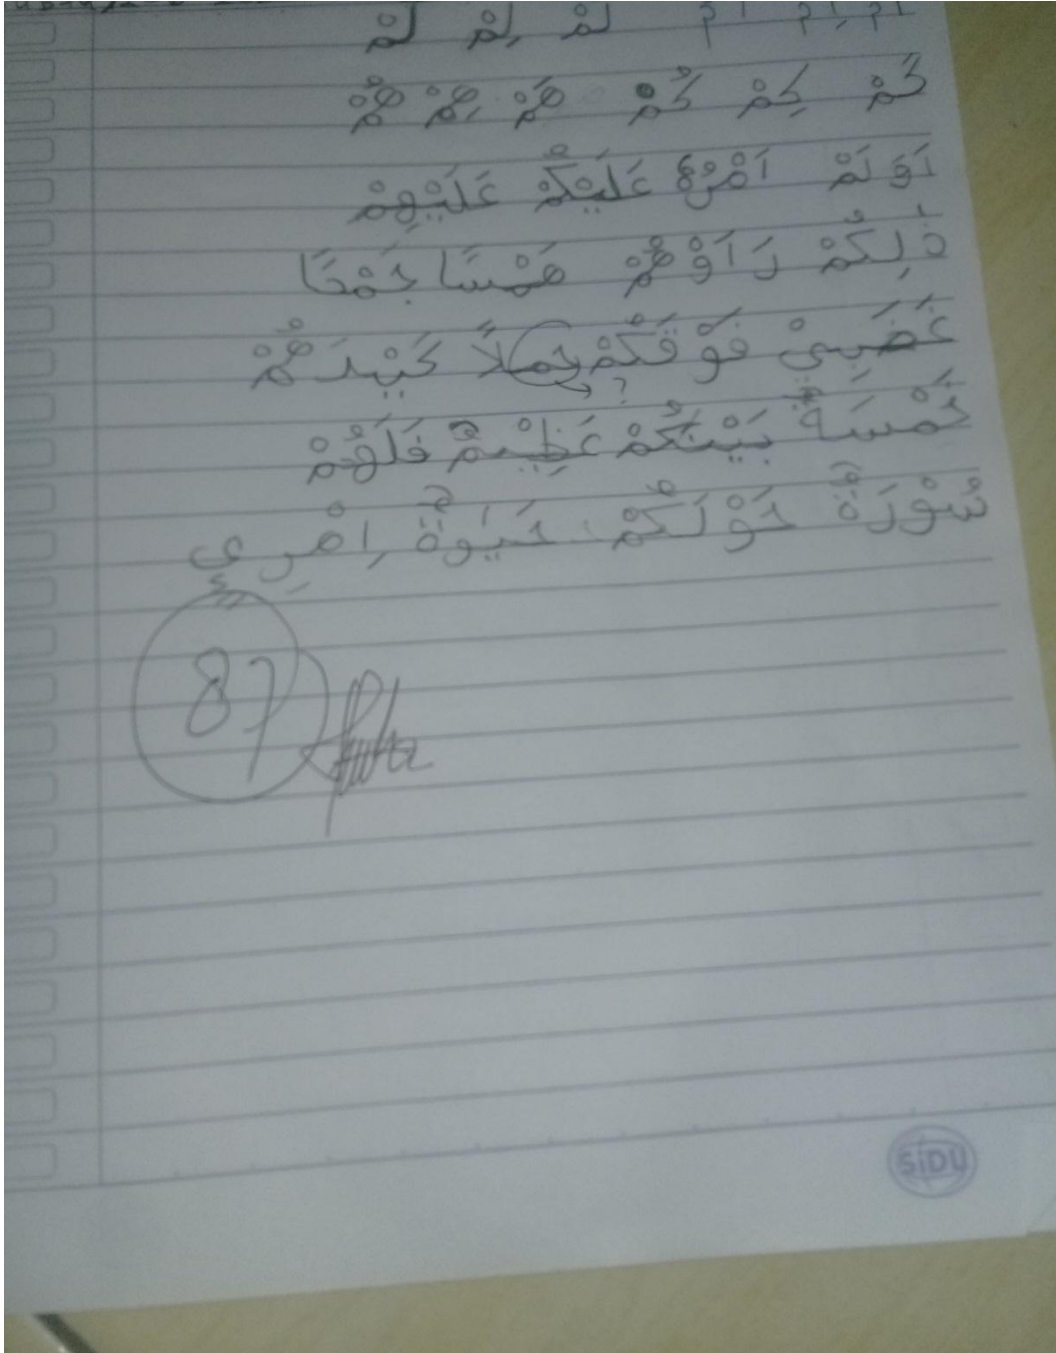 لَمْ لِمْ لُمْ
حَمْ حِمْ حُمْ هَمْ هِمْ هُمْ
اَوَلَمْ عَلَيْكُمْ عَلَيْهِمْ
ذٰلِكُمْ رَاَوْهُمْ هَمْسًا جَمْعًا
غَضَبِيْ فَوْقَكُمْ حَمْلاً كَيْدَهُمْ
?
خَمْسَةٌ بَيْنَكُمْ عَظِيْمٌ فَلَهُمْ
سُوْرَةٌ حَوْلَكُمْ حَيٰوةٌ اَمْرِيْ
87
SiDU